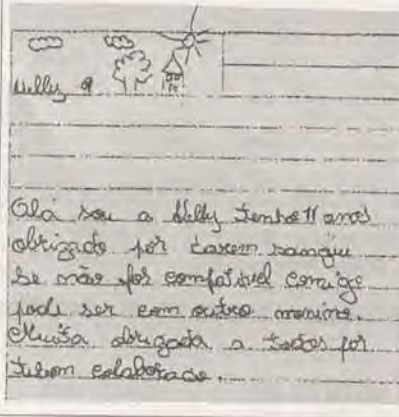 Nelly
Olá sou a Nelly tenho 11 anos
obrigado por darem sangue
se não for compatível comigo
pode ser com outro menino.
Muita obrigada a todos por
terem colaborado.